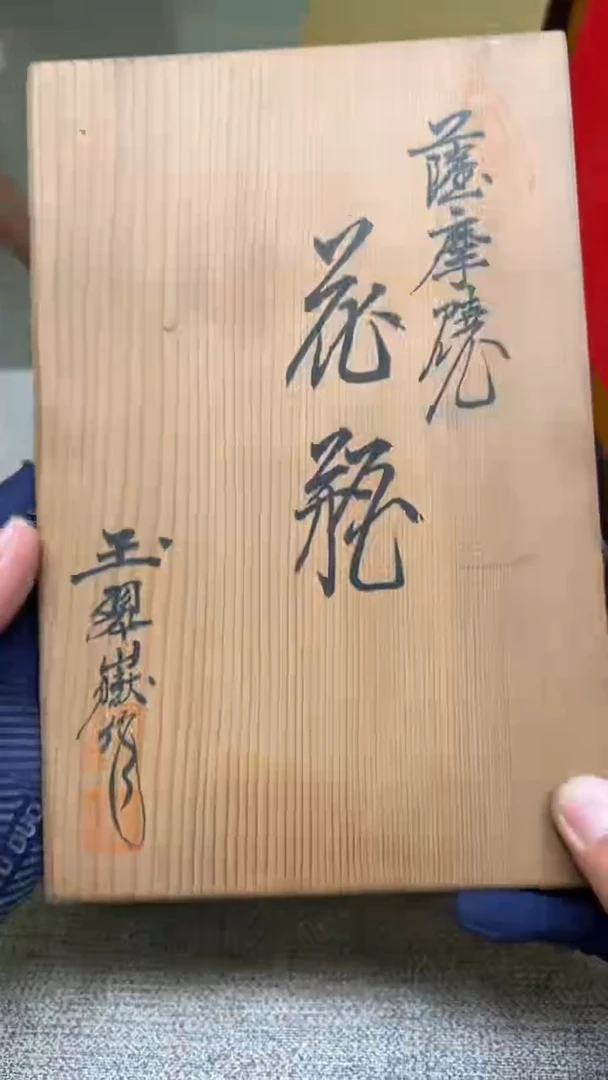 薩摩焼
花瓶
玉翠嶽作